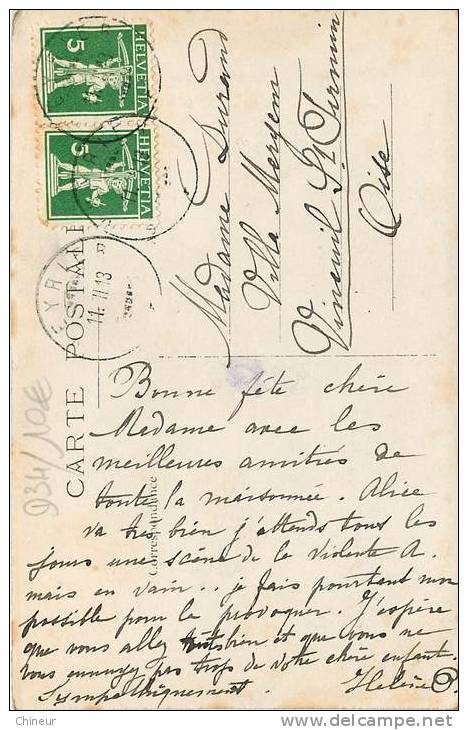 HELVETIA 5
HELVETIA 5
11. II 13
CARTE POSTALE
Correspondance
934/10€
Madame Durand
Villa Mergem
Vineuil St Firmin
Oise
Bonne fête chère
Madame avec les
meilleures amitiés de
toute la maisonnée. Alice
va très bien j'attends tous les
jours une scène de la violente A.
mais en vain.. je fais pourtant mon
possible pour la provoquer. J'espère
que vous allez tous bien et que vous ne
vous ennuyez pas trop de votre chère enfant.
Sympathiquement. Helène
Chineur
delcampe.net